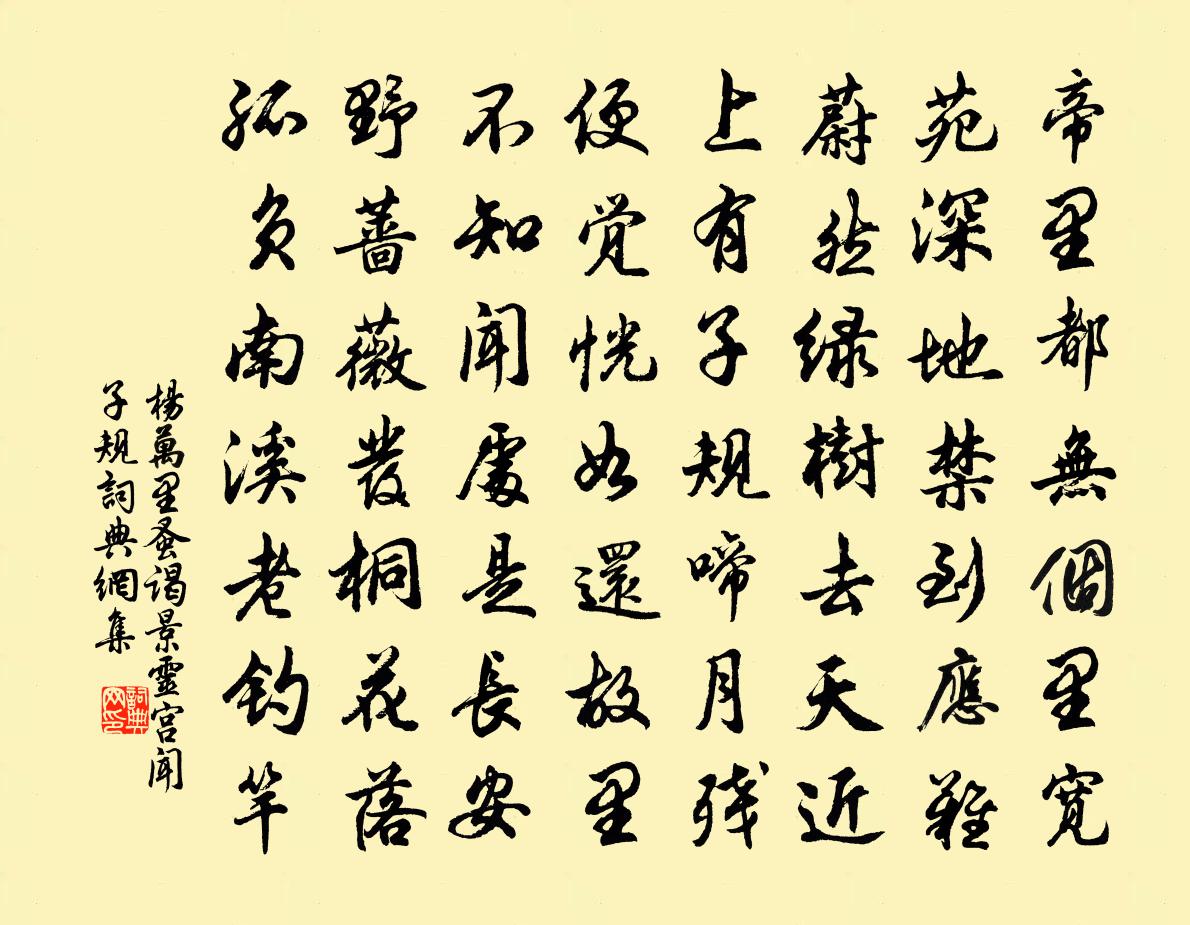 帝里都無個里寬
苑深地禁到應難
蔚然绿樹去天近
上有子規啼月残
便覚恍如還故里
不知聞處是長安
野薔薇發桐花落
孤負南溪老釣竿
楊萬里蚤謁景靈宫聞
子規詞典網集
詞典网印